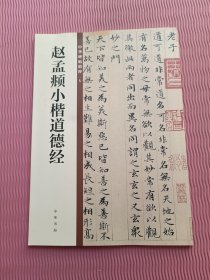 中华碑帖精粹
赵孟頫小楷道德经
中华书局
老子
道可道非常道名可名非常名無名天地之始
有名萬物之母常無欲以觀其妙常有欲以觀
其徼此兩者同出而異名同謂之玄玄之又玄眾
妙之門
天下皆知美之為美斯惡已皆知善之為善斯不善
已故有無之相生難易之相成長短之相形高